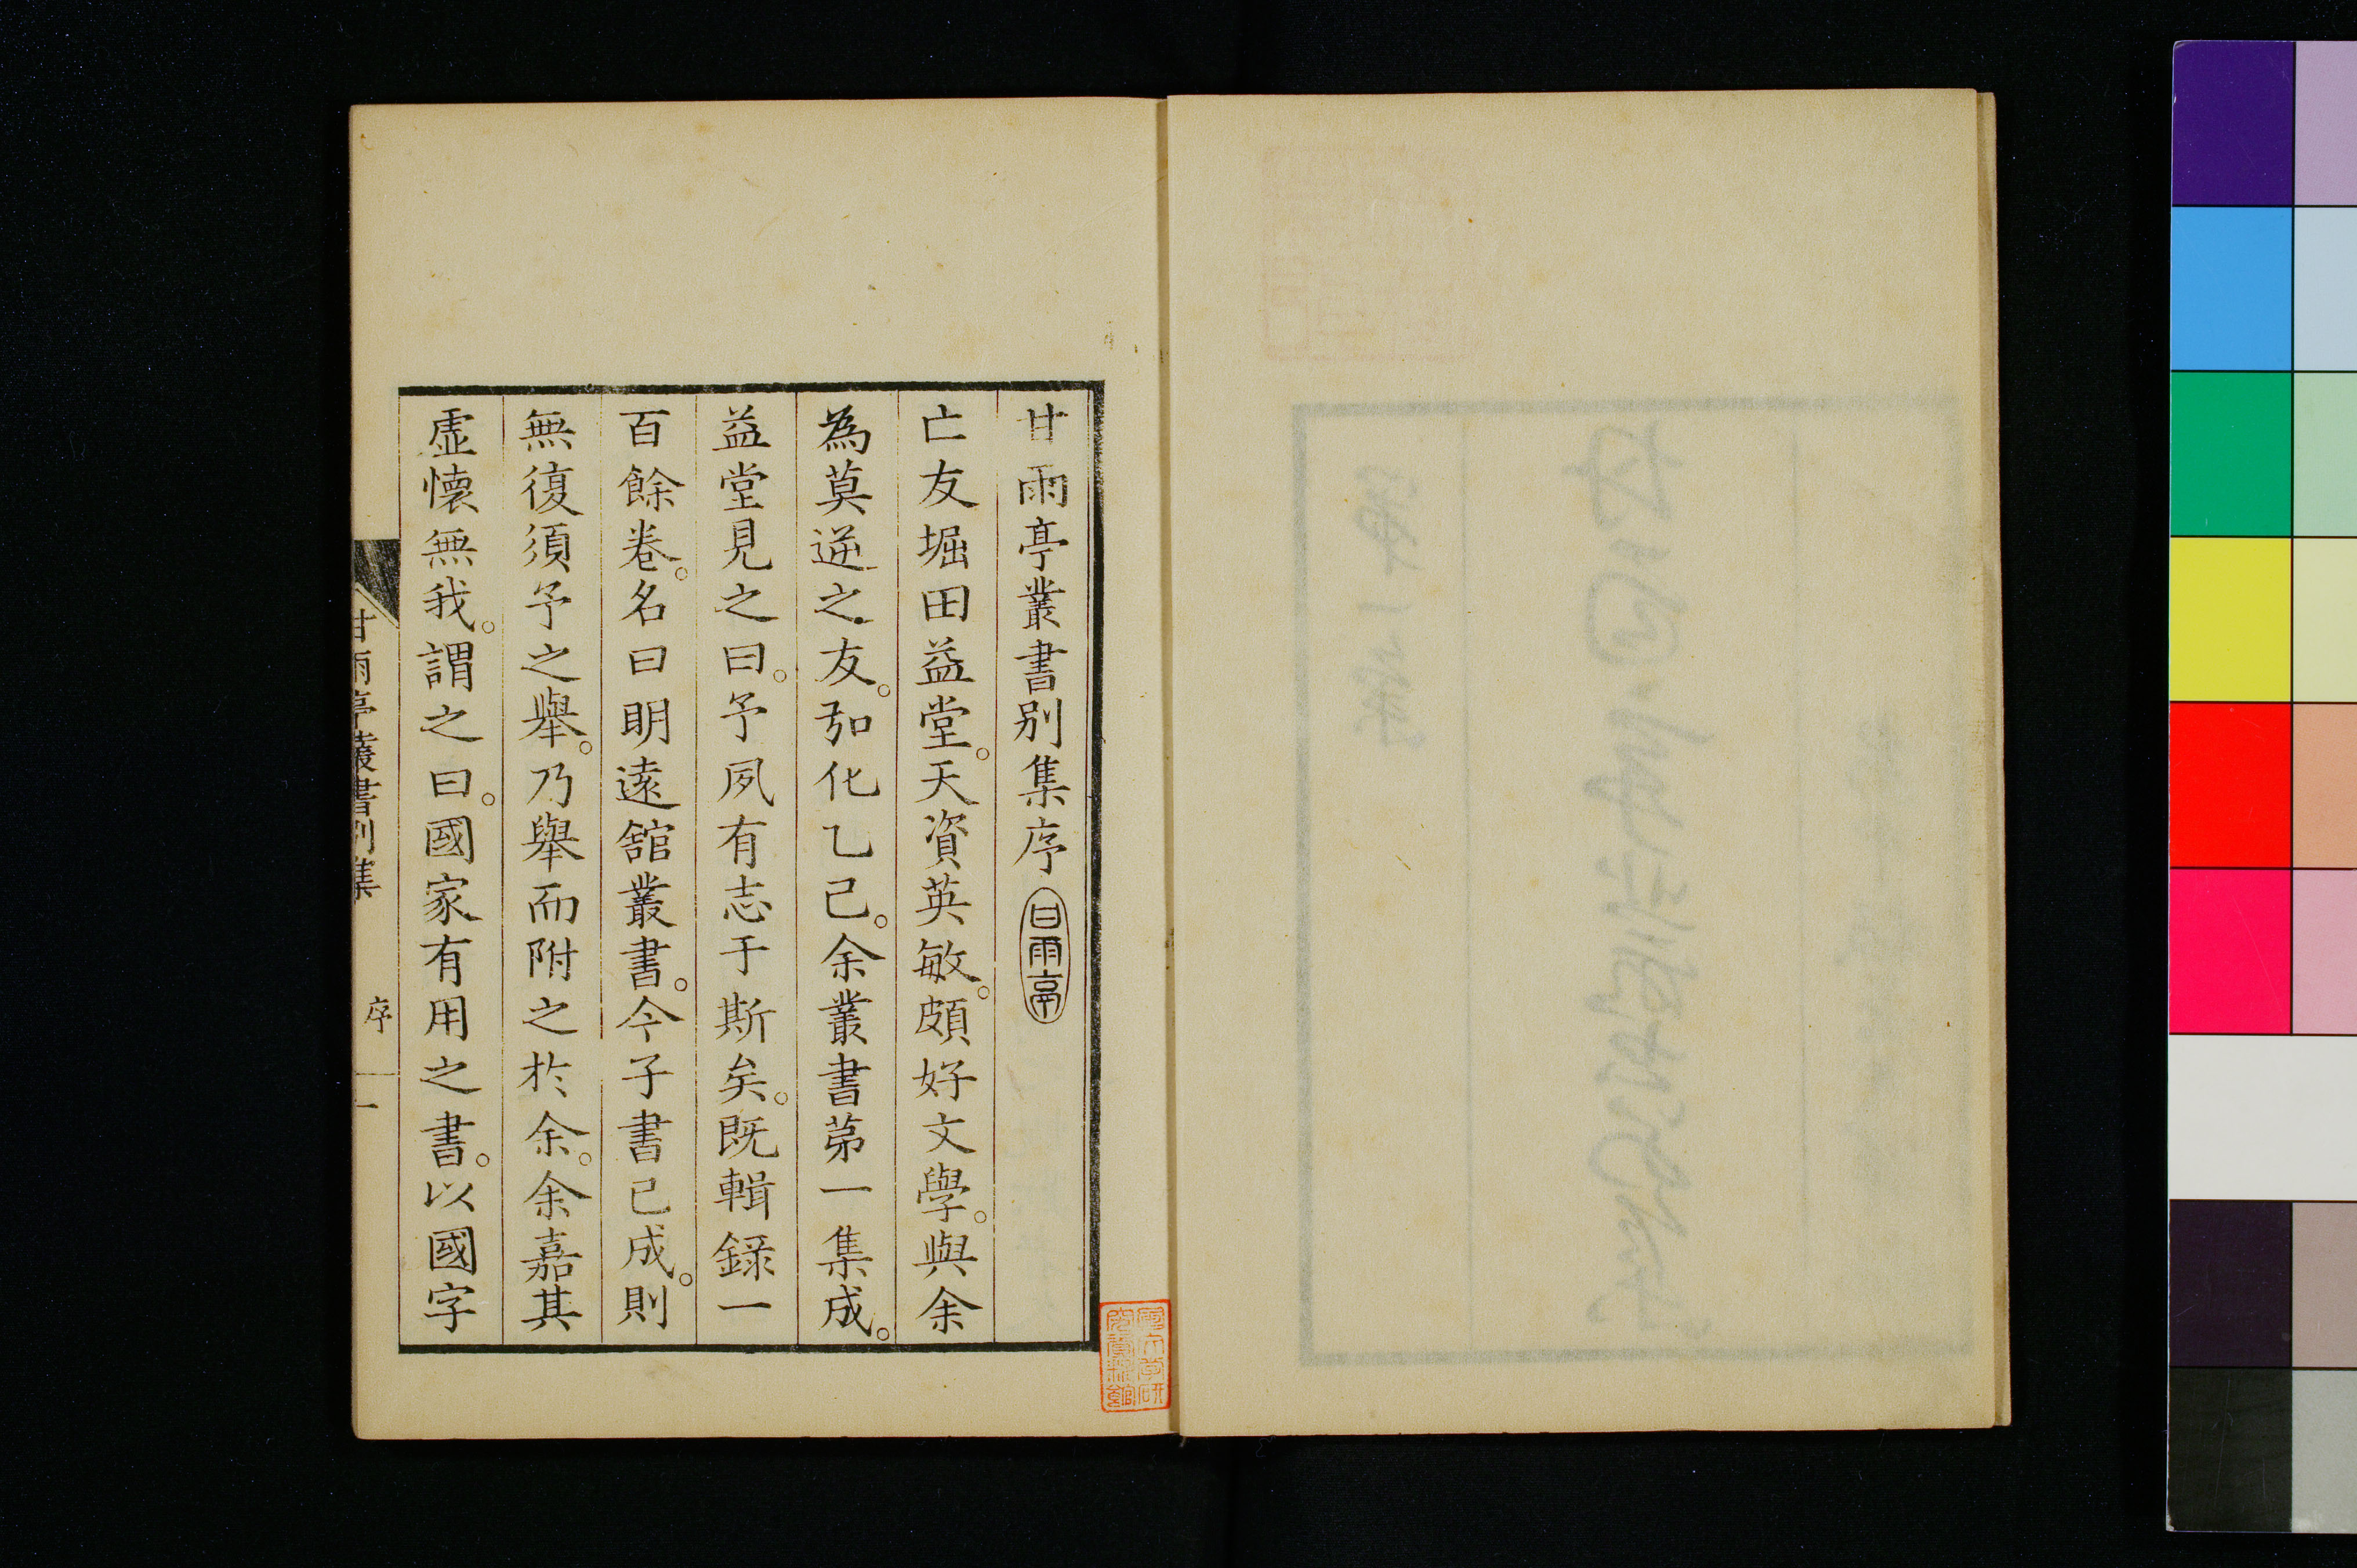 甘雨亭叢書別集序 甘雨亭
亡友堀田益堂。天資英敏。頗好文學。與余
為莫逆之友。弘化乙己。余叢書苐一集成。
益堂見之曰。予夙有志于斯矣。既輯録一
百餘卷。名曰明遠舘叢書。今子書已成。則
無復須予之舉。乃舉而附之於余。余嘉其
虛懐無我。謂之曰。國家有用之書。以國字
甘雨亭叢書別集 序 一